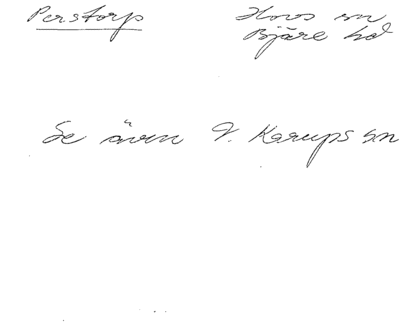 Perstorp
Hovs sn
Bjäre hd
Se även V. Karups sn